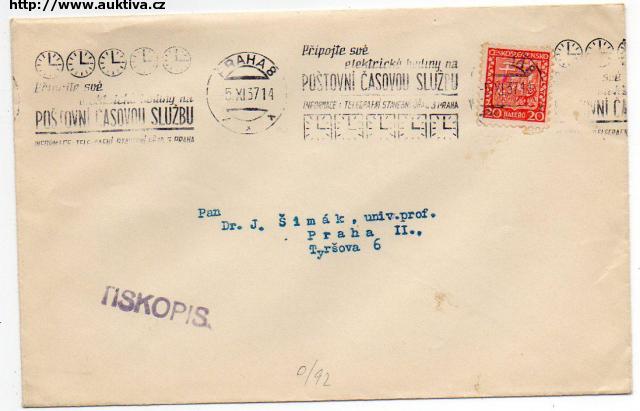 http://www.auktiva.cz
Připojte své
elektrické hodiny na
POŠTOVNÍ ČASOVOU SLUŽBU
INFORMACE: TELEGRAFNÍ STAVEBNÍ ÚŘAD 3 PRAHA
PRAHA 8
5.XI.37 14
Připojte své
elektrické hodiny na
POŠTOVNÍ ČASOVOU SLUŽBU
INFORMACE: TELEGRAFNÍ STAVEBNÍ ÚŘAD 3 PRAHA
ČESKOSLOVENSKO
20 HALÉŘŮ 20
Pan
Dr. J. Šimák, univ.prof.
Praha II.,
Tyršova 6
TISKOPIS.
0/92